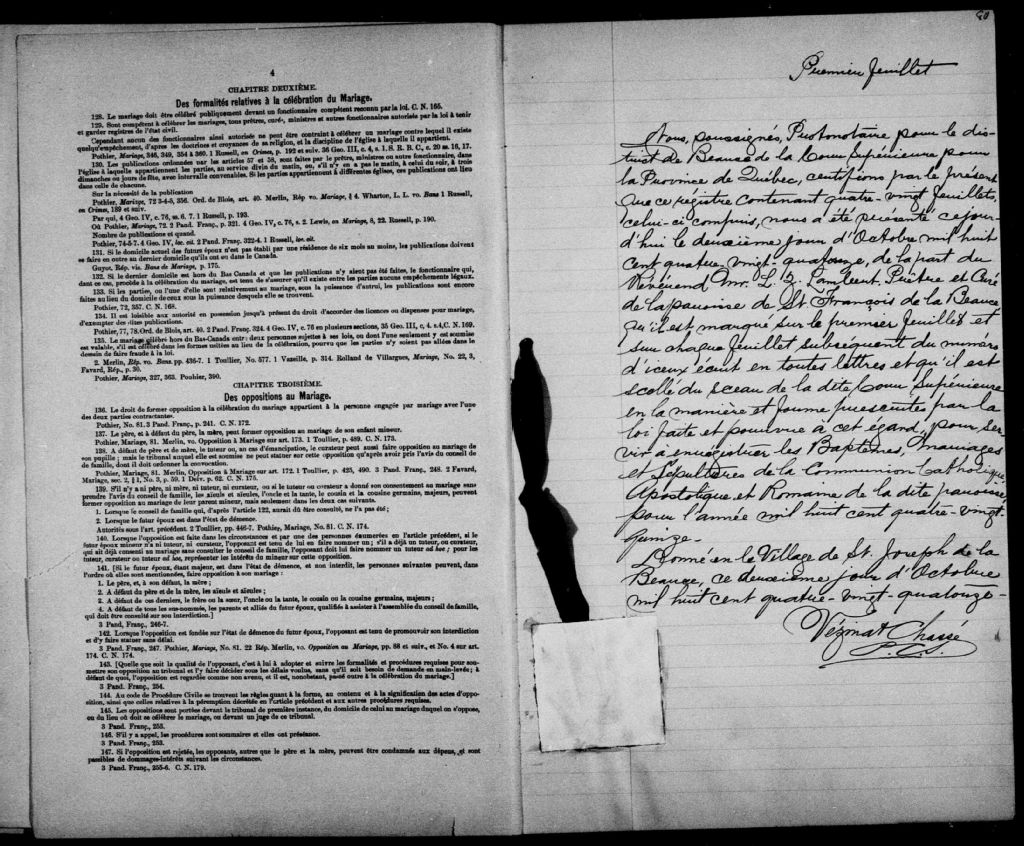 4
CHAPITRE DEUXIÈME.
Des formalités relatives à la célébration du Mariage.
128. Le mariage doit être célébré publiquement devant un fonctionnaire compétent reconnu par la loi. C. N. 165.
129. Sont compétent à célébrer les mariages, tous prêtres, curés, ministres et autres fonctionnaires autorisés par la loi à tenir
et garder registres de l'état civil.
Cependant aucun des fonctionnaires ainsi autorisés ne peut être contraint à célébrer un mariage contre lequel il existe
quelqu'empêchement, d'après les doctrines et croyances de sa religion, et la discipline de l'église à laquelle il appartient.
Pothier, Mariage, 346, 349, 354 à 360. 1 Russell, on Crimes, p. 192 et suiv. 35 Geo. III, c. 4, s. 1. S. R. B. C., c. 20 ss. 16, 17.
130. Les publications ordonnées par les articles 57 et 58, sont faites par le prêtre, ministre ou autre fonctionnaire, dans
l'église à laquelle appartiennent les parties, au service divin du matin, ou, s'il n'y en a pas le matin, à celui du soir, à trois
dimanches ou jours de fête, avec intervalle convenables. Si les parties appartiennent à différentes églises, ces publications ont lieu
dans celle de chacune.
Sur la nécessité de la publication
Pothier, Mariage, 72 3-4-5, 356. Ord. de Blois, art. 40. Merlin, Rép vo. Mariage, § 4. Wharton, L. L. vo. Bans 1 Russell,
on Crimes, 189 et suiv.
Par qui, 4 Geo. IV, c. 76, ss. 6. 7. 1 Russell, p. 193.
Où Pothier, Mariage, 72. 2 Pand. Franç. p. 321. 4 Geo. IV, c. 76, s. 2. Lewis, on Mariage, 8, 22. Russell, p. 190.
Nombre de publications et quand.
Pothier, 74-5-7. 4 Geo. IV, loc. cit. 2 Pand. Franç. 322-4. 1 Russell, loc. cit.
131. Si le domicile actuel des futurs époux n'est pas établi par une résidence de six mois au moins, les publications doivent
se faire en outre au dernier domicile qu'ils ont eu dans le Canada.
Guyot, Rép. vis. Bans de Mariage, p. 175.
132. Si le dernier domicile est hors du Bas Canada et que les publications n'y aient pas été faites, le fonctionnaire qui,
dans ce cas, procède à la célébration du mariage, est tenu de s'assurer qu'il existe entre les parties aucuns empêchements légaux.
133. Si les parties, ou l'une d'elle sont relativement au mariage, sous la puissance d'autrui, les publications sont encore
faites au lieu du domicile de ceux sous la puissance desquels elle se trouvent.
Pothier, 72, 357. C. N. 168.
134. Il est loisible aux autorité en possession jusqu'à présent du droit d'accorder des licences ou dispenses pour mariage,
d'exempter des dites publications.
Pothier, 77, 78. Ord. de Blois, art. 40. 2 Pand. Franç. 324. 4 Geo. IV, c. 76 en plusieurs sections, 35 Geo. III, c. 4. s.4, C. N. 169.
135. Le mariage célébré hors du Bas-Canada entre deux personnes sujettes à ses lois, ou dont l'une seulement y est soumise
est valable, s'il est célébré dans les formes usitées au lieu de la célébration, pourvu que les parties n'y soient pas allées dans le
dessein de faire fraude à la loi.
2. Merlin, Rép. vo. Bans, pp 436-7. 1 Toullier, No. 577. 1 Vazeille, p. 314. Rolland de Villargues, Mariage, No. 22, 3,
Favard, Rép., p. 30.
Pothier, Mariage, 327, 363. Pouhier, 390.
CHAPITRE TROISIÈME.
Des oppositions au Mariage.
136. Le droit de former opposition à la célébration du mariage appartient à la personne engagée par mariage avec l'une
des deux parties contractantes.
Pothier, No. 81. 3 Pand. Franç., p. 241. C. N. 172.
137. Le père, et à défaut du père, la mère, peut former opposition au mariage de son enfant mineur.
Pothier, Mariage, 81. Merlin, vo. Opposition à Mariage sur art. 173. 1 Toullier, p. 489. C. N. 173.
138. A défaut de père et de mère, le tuteur ou, au cas d'émancipation, le curateur peut aussi faire opposition au mariage de
son pupille ; mais le tribunal auquel elle est soumise ne peut statuer sur cette opposition qu'après avoir pris l'avis du conseil de
famille, dont il doit ordonner la convocation.
Pothier, Mariage, 81. Merlin, Opposition à Mariage sur art. 172. 1 Toullier, p. 423, 490. 3 Pand. Franç., 248. 2 Favard,
Mariage, sec. 2, § 1, No. 3, p. 59. 1 Delv. p. 62. C. N. 175.
139. S'il n'y a ni père, ni mère, ni tuteur, ni curateur, ou si le tuteur ou curateur a donné son consentement au mariage sans
prendre l'avis du conseil de famille, les aïeuls et aïeules, l'oncle et la tante, le cousin et la cousine germains, majeurs, peuvent
former opposition au mariage de leur parent mineur, mais seulement dans les deux cas suivants.
1. Lorsque le conseil de famille qui, d'après l'article 122, aurait dû être consulté, ne l'a pas été ;
2. Lorsque le futur époux est dans l'état de démence.
Autorités sous l'art. précédent. 2 Toullier, pp. 446-7. Pothier, Mariage, No. 81. C. N. 174.
140. Lorsque l'opposition est faite dans les circonstances et par une des personnes énumérées en l'article précédent, si le
futur époux mineur n'a ni tuteur, ni curateur, l'opposant est tenu de lui en faire nommer un ; s'il a déjà un tuteur, ou curateur,
qui ait déjà consenti au mariage sans consulter le conseil de famille, l'opposant doit lui faire nommer un tuteur ad hoc ; pour les
tuteur, curateur ou tuteur ad hoc, représenter les intérêts du mineur sur cette opposition.
141. [Si le futur époux, étant majeur, est dans l'état de démence, et non interdit, les personnes suivantes peuvent, dans
l'ordre où elles sont mentionnées, faire opposition à son mariage :
1. Le père, et, à son défaut, la mère ;
2. A défaut du père et de la mère, les aïeuls et aïeules ;
3. A défaut de ces derniers, le frère ou la sœur, l'oncle ou la tante, le cousin ou la cousine germains, majeurs ;
4. A défaut de tous les sus-nommés, les parents et alliés du futur époux, qualifiés à assister à l'assemblée du conseil de famille,
qui doit être consulté sur son interdiction.]
3 Pand, Franç., 246-7.
142. Lorsque l'opposition est fondée sur l'état de démence du futur époux, l'opposant est tenu de promouvoir son interdiction
et d'y faire statuer sans délai.
3 Pand. Franç., 247. Pothier, Mariage, No. 81. 22 Rép. Merlin, vo. Opposition au Mariage, pp. 88 et suiv., et No. 4 sur art.
174. C. N. 174.
143. [Quelle que soit la qualité de l'opposant, c'est à lui à adopter et suivre les formalités et procédures requises pour sou-
mettre son opposition au tribunal et l'y faire décider sous les délais voulus, sans qu'il soit besoin de demande en main-levée ; à
défaut de quoi, l'opposition est regardée comme non avenue, et il est, nonobstant, passé outre à la célébration du mariage.]
3 Pand. Franç., 254.
144. Au code de Procédure Civile se trouvent les règles quant à la forme, au contenu et à la signification des actes d'oppo-
sition, ainsi que celles relatives à la péremption décrétée en l'article précédent et aux autres procédures requises.
145. Les oppositions sont portées devant le tribunal de première instance, du domicile de celui au mariage duquel on s'oppose,
ou du lieu où doit se célébrer le mariage, ou devant un juge de ce tribunal.
3 Pand. Franç., 253.
146. S'il y a appel, les procédures sont sommaires et elles ont préséance.
3 Pand. Franç., 253.
147. Si l'opposition est rejetée, les opposants, autres que le père et la mère, peuvent être condamnés aux dépens, et sont
passibles de dommages-intérêts suivant les circonstances.
3 Pand. Franç., 255-6. C. N. 179.
Premier feuillet
Nous, soussignés, Protonotaire pour le dis-
trict de Beauce de la Cour Supérieure pour
la Province de Québec, certifions par le présent
que ce registre contenant quatre-vingt feuillets,
celui-ci compris, nous a été présenté ce jour-
d'hui le deuxième jour d'Octobre mil huit
cent quatre-vingt-quatorze, de la part du
Révérend Mr. L. Z. Lambert, Prêtre et Curé
de la paroisse de St. François de la Beauce
qu'il est marqué sur le premier feuillet et
sur chaque feuillet subséquent du numéro
d'iceux écrit en toutes lettres et qu'il est
scellé du sceau de la dite Cour Supérieure
en la manière et forme prescrites par la
loi faite et pourvue à cet égard, pour ser-
vir à enregistrer les Baptêmes, mariages
et Sépultures de la Communion Catholique,
Apostolique et Romaine de la dite paroisse
pour l'année mil huit cent quatre-vingt-
quinze.
Donné en le Village de St. Joseph de la
Beauce, ce deuxième jour d'Octobre
mil huit cent quatre-vingt-quatorze-
Vézina & Chassé
P. C. S.